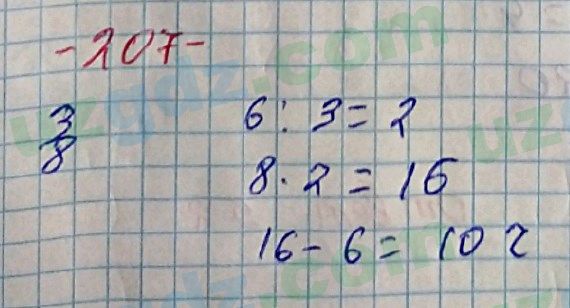 -207-
3/8
6 : 3 = 2
8 · 2 = 16
16 - 6 = 10 г
uzgdz.com